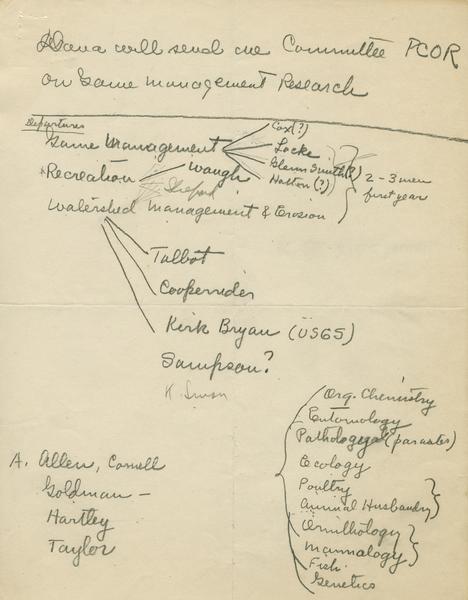 Dana will send me Committee PCOR
on Game management Research
Departures
Game Management
Cox (?)
Locke
Glenn Smith (?)
Hatton (?)
2-3 men
first year
Recreation
Waugh
Watershed Management & Erosion
Talbot
Cooperrider
Kirk Bryan (USGS)
Sampson?
Org. Chemistry
Entomology
(parasites)
Ecology
Poultry
Animal Husbandry
Ornithology
Mammalogy
Fish
Genetics
A. Allen, Cornell
Goldman -
Hartley
Taylor